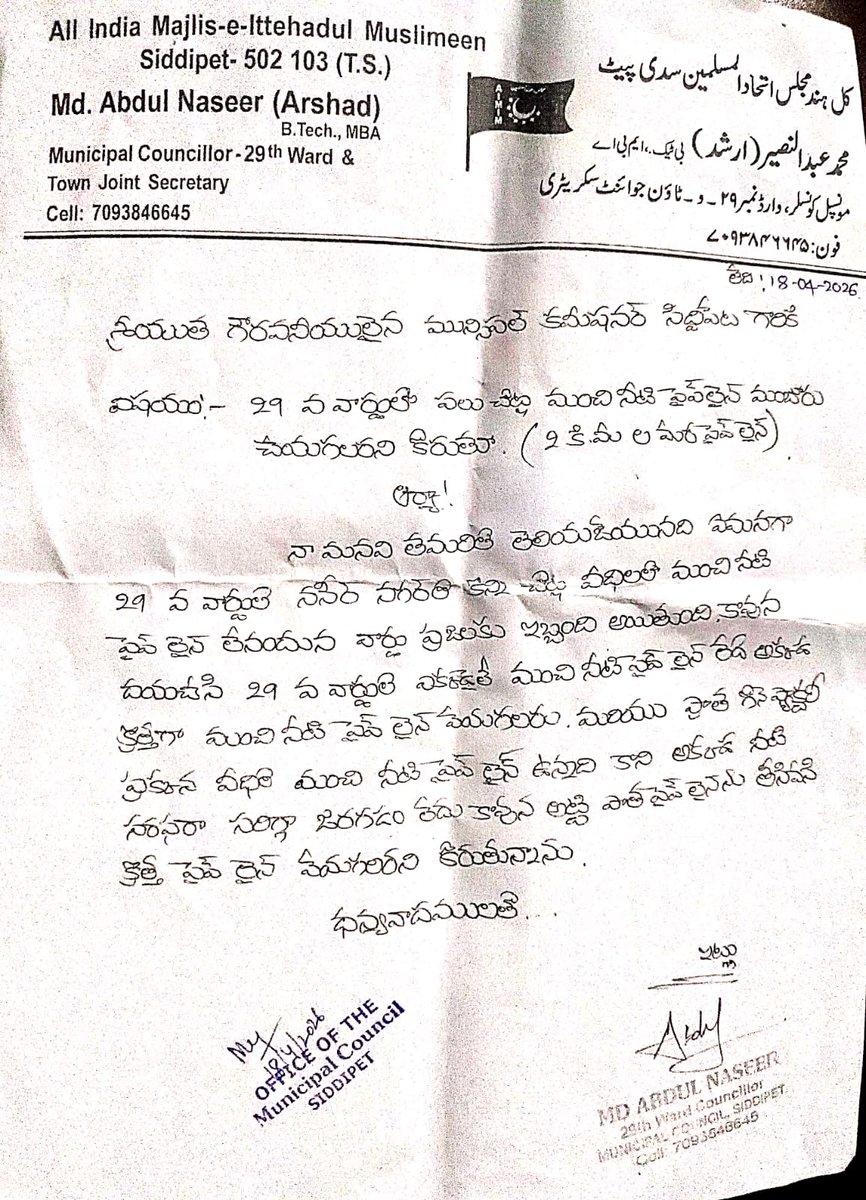 All India Majlis-e-Ittehadul Muslimeen
Siddipet- 502 103 (T.S.)
Md. Abdul Naseer (Arshad)
B.Tech., MBA
Municipal Councillor - 29th Ward &
Town Joint Secretary
Cell: 7093846645
AIMIM
کل ہند مجلس اتحاد المسلمین سدی پیٹ
محمد عبدالنصیر (ارشد) بی ٹیک۔، ایم بی اے
مونسپل کونسلر، وارڈ نمبر ۲۹ - و - ٹاؤن جوائنٹ سکریٹری
فون: ۷۰۹۳۸۴۶۶۴۵
తేది! 18-04-2026
శ్రీయుత గౌరవనీయులైన మున్సిపల్ కమీషనర్ సిద్దిపేట గారికి
విషయం:- 29 వ వార్డులో పలు చోట్ల మంచి నీటి పైప్ లైన్ మంజూరు
చేయగలరని కోరుతూ. (2 కి.మీ ల మేర పైప్ లైన్)
ఆర్యా!
నా మనవి తమరితో తెలియజేయునది ఏమనగా
29 వ వార్డులో నసీర్ నగర్ లో కొన్ని చోట్ల వీధిలలో మంచి నీటి
పైప్ లైన్ లేనందున వార్డు ప్రజలకు ఇబ్బంది అయితుంది. కావున
దయచేసి 29 వ వార్డులో ఎక్కడైతే మంచి నీటి పైప్ లైన్ లేదో అక్కడ
క్రొత్తగా మంచి నీటి పైప్ లైన్ వేయగలరు. మరియు ప్రాత
ప్రక్కన వీధిలో మంచి నీటి పైప్ లైన్ ఉన్నది కాని అక్కడ నీటి
సరఫరా సరిగ్గా జరగడం లేదు కావున అట్టి పాత పైప్ లైన్ ను తీసివేసి
క్రొత్త పైప్ లైన్ వేయగలరని కోరుతున్నాను.
ధన్యవాదములతో...
ఇట్లు
18/4/2026
OFFICE OF THE
Municipal Council
SIDDIPET
MD ABDUL NASEER
29th Ward Councillor
MUNICIPAL COUNCIL, SIDDIPET.
Cell: 7093846645